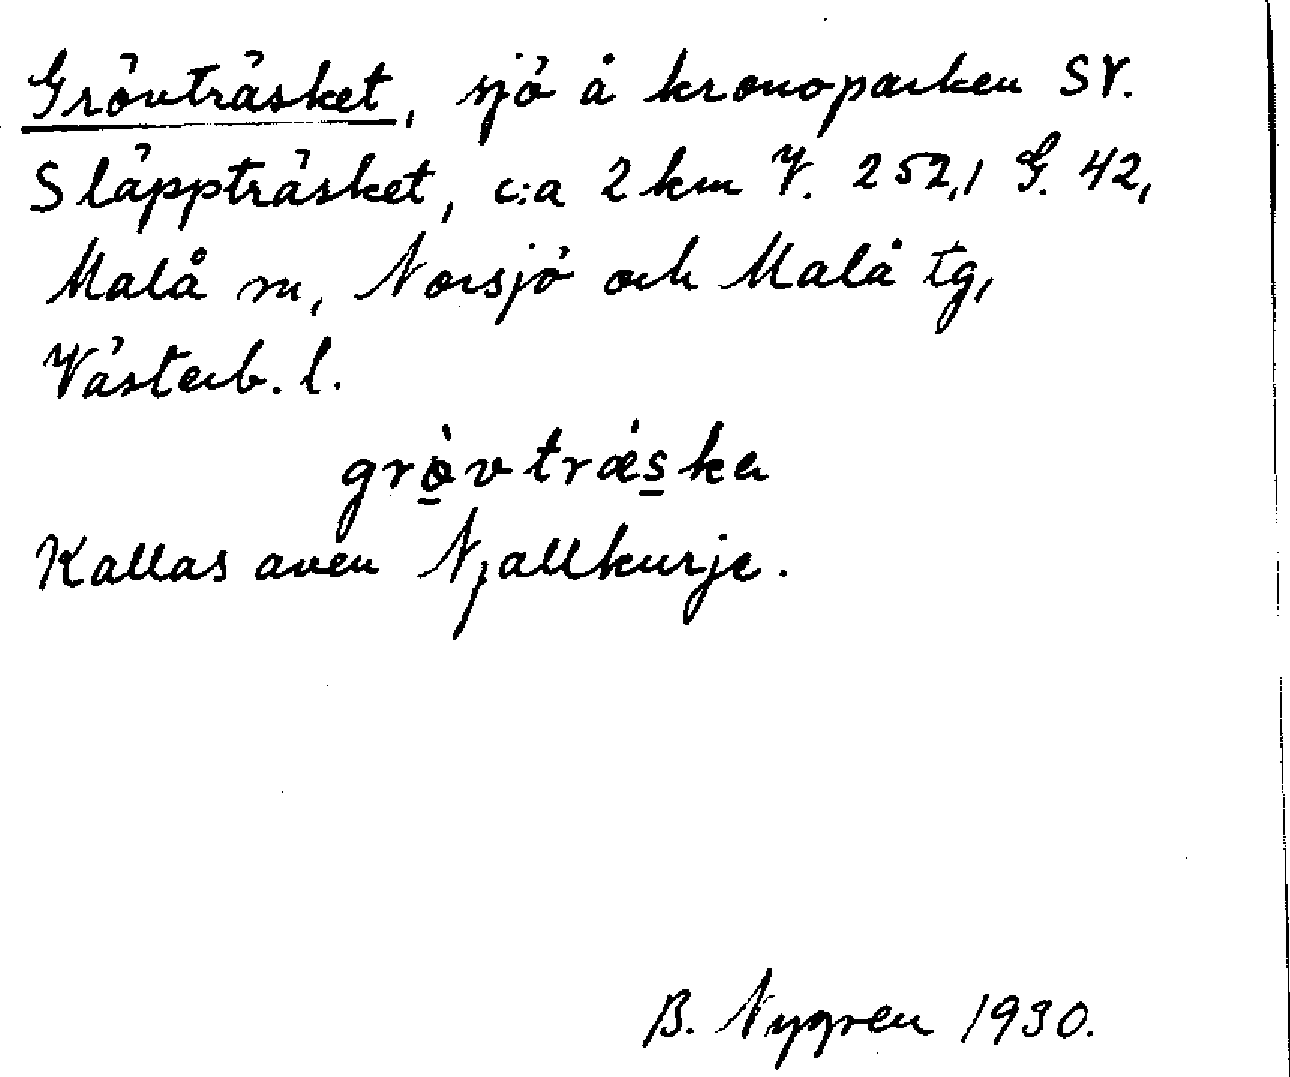 Grövträsket, sjö å kronoparken SV.
Släppträsket, c:a 2 km V. 252,1 G. 42,
Malå sn, Norsjö och Malå tg,
Västerb. l.
grø̱̀vtræ̀s̱ka
Kallas även Njallkurje.
B. Nygren 1930.